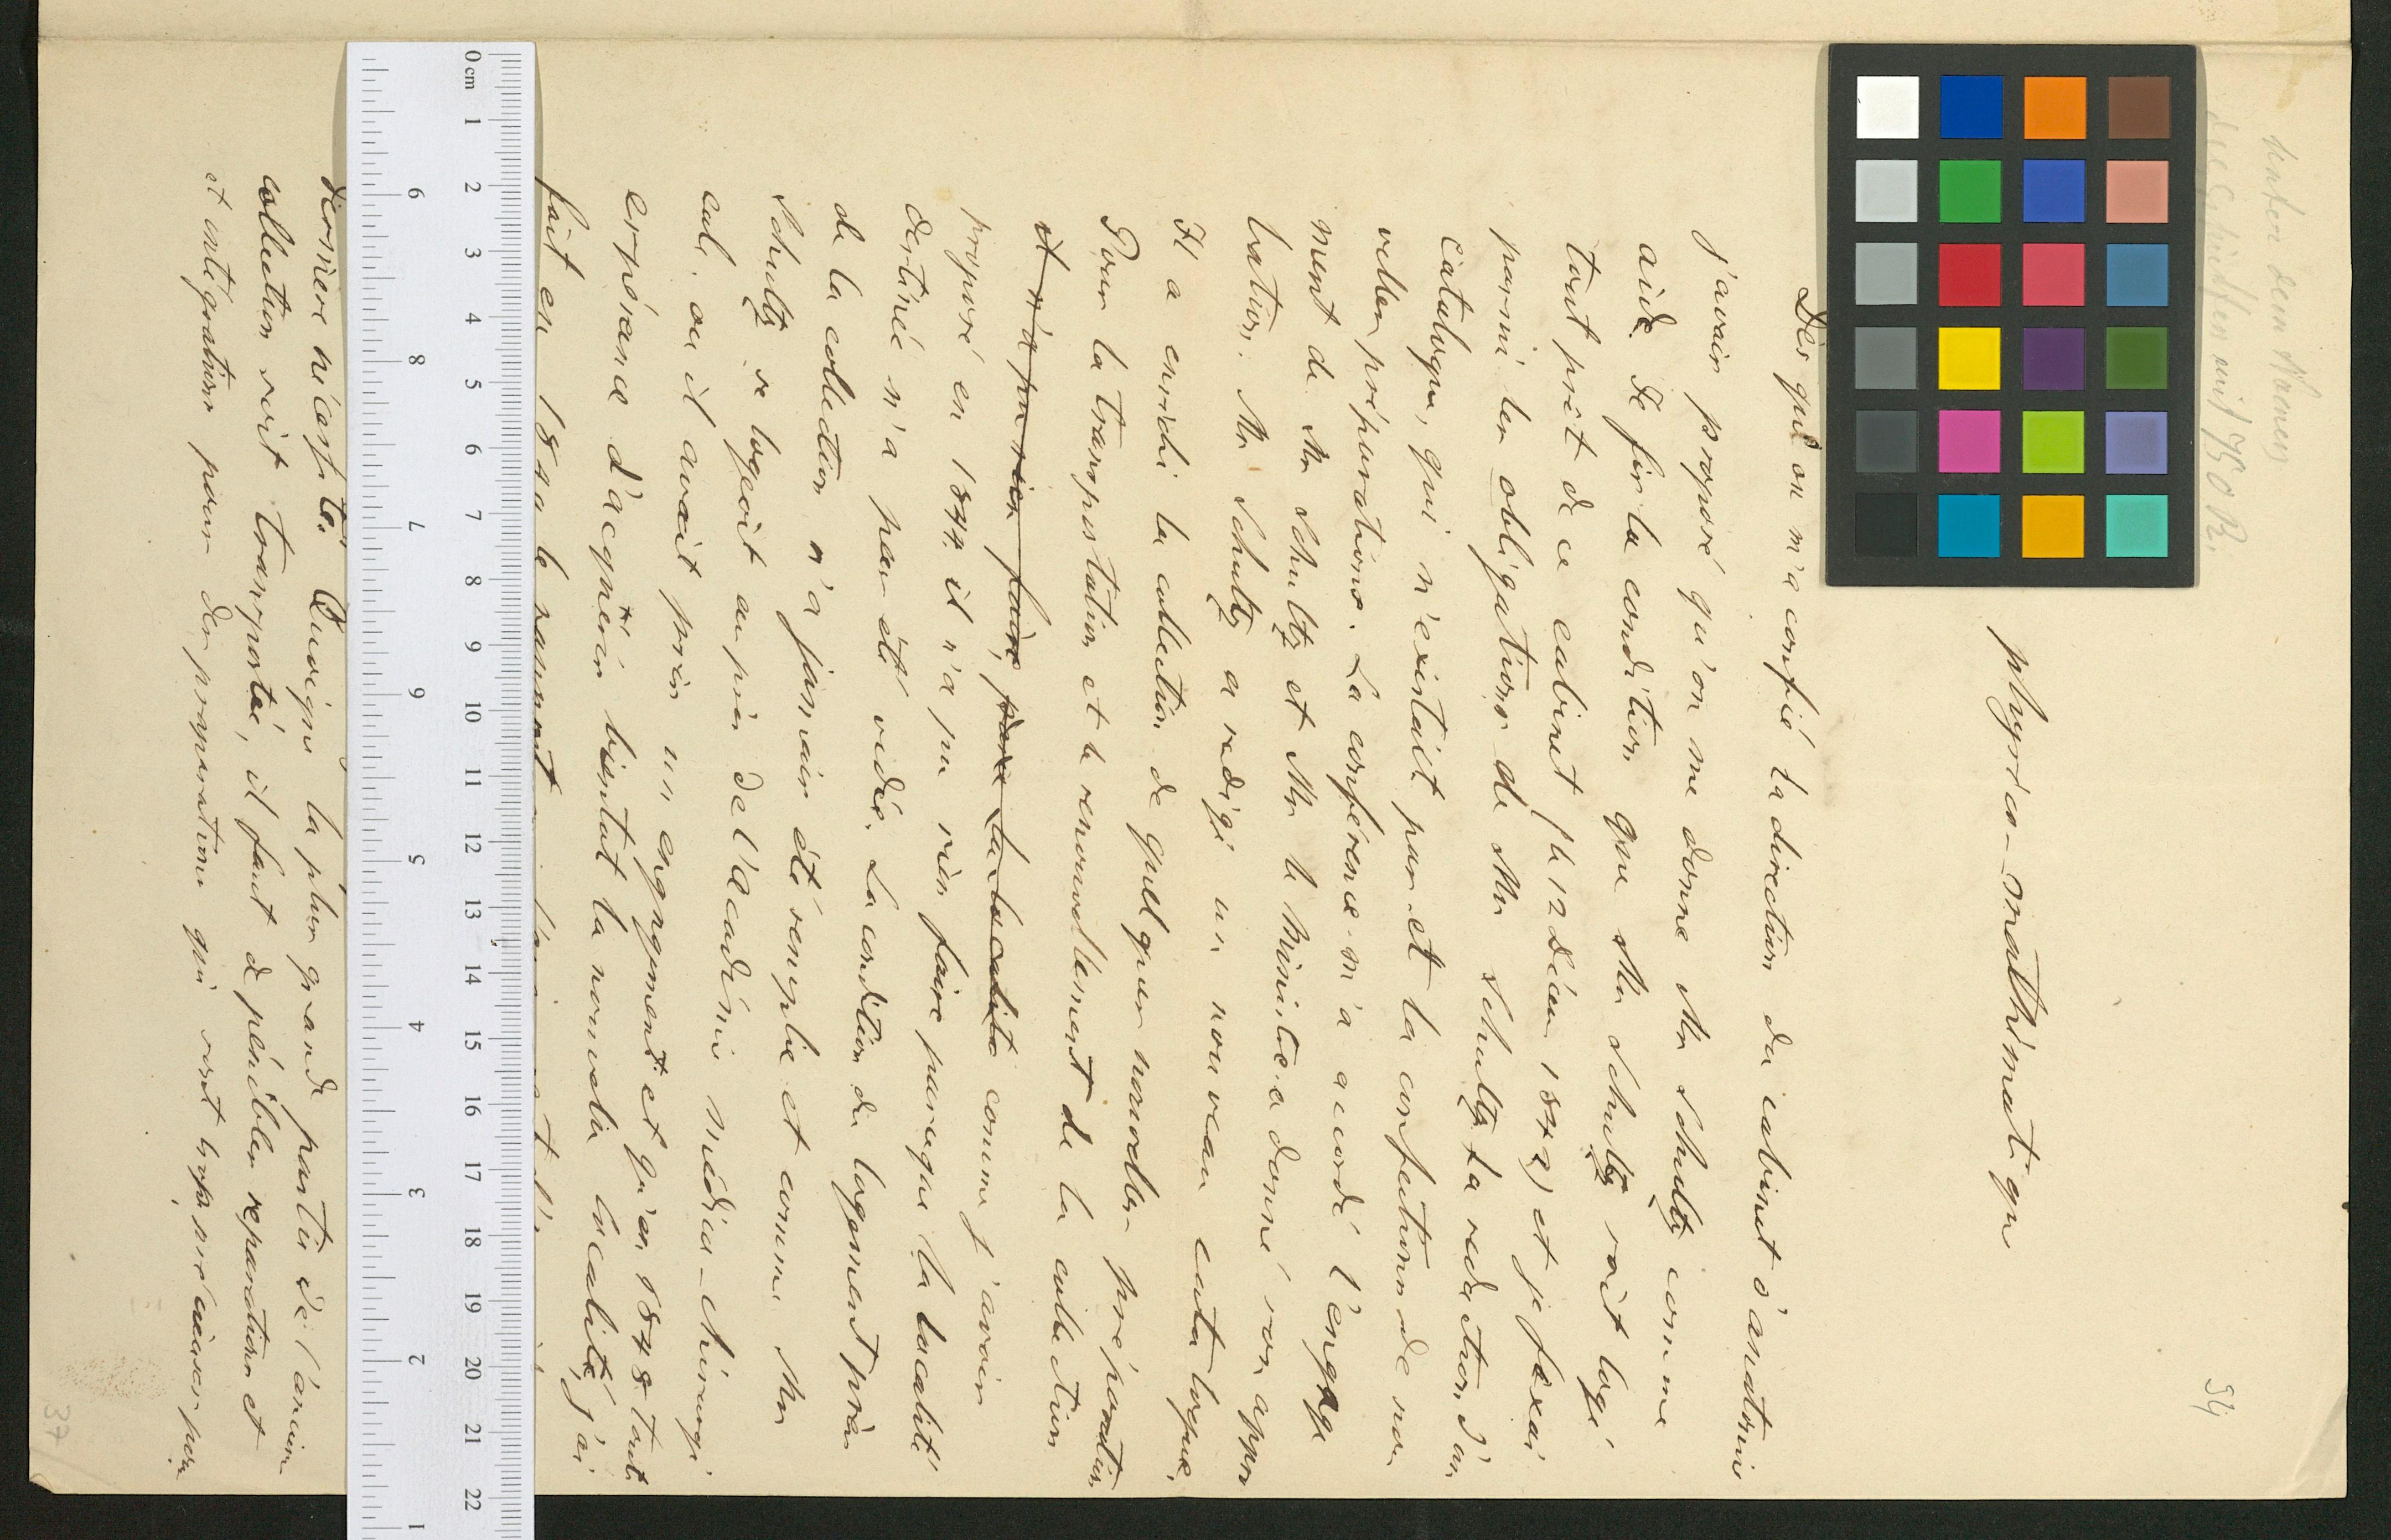 unter dem Namen
mit 750 R.
34
physico-mathématique
Dès qu'on m'a confié la direction du cabinet d'anatomie
j'avais proposé qu'on me donne Mr Schultz comme
aide. Je fis la condition que Mr Schultz soit logé
tout prèt de ce cabinet (le 12 Décem 1842) et je fixai
parmi les obligations de Mr Schultz la redaction d'un
catalogue, qui n'existait pas et la confection de nou
velles préparations. La conférence m'a accordé l'engage
ment de Mr Schultz et Mr le Ministre a donné son appro
bation. Mr Schultz a redigé un nouveau catalogue.
Il a enrichi la collection de quelques nouvelles préparations
Pour la transportation et le renouvellement de la collection
il n'a pu rien faire, parce la localité comme j'avais
proposé en 1844 il n'a pu rien faire parceque la localité
destinée n'a pas été vidée. La condition du logement près
de la collection n'a jamais été remplie et comme Mr
Schultz se logeoit au près de l'académie médico-chirurgi
cale où il avait pris un engagement et qu'en 1848 toute
espérance d'acquérir bientot la nouvelle localité, j'ai
fait en
dernière nécessité. Quoique la plus grande partie de l'ancienne
collection soit transportée, il faut de pénibles reparations et
et intégrations pour des preparations qui sont très précieuses pour
37
0 cm 1 2 3 4 5 6 7 8 9 10 11 12 13 14 15 16 17 18 19 20 21 22
9 8 7 6 5 4 3 2 1